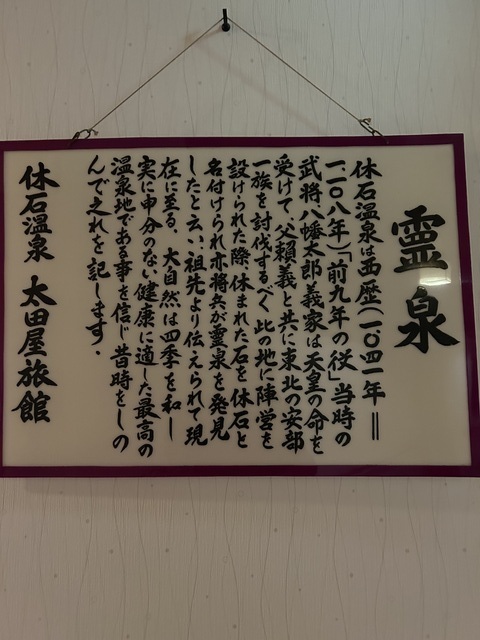 霊泉
休石温泉は西歴(一、〇四一年＝
一一〇八年)「前九年の役」当時の
武将八幡太郎義家は天皇の命を
受けて、父頼義と共に東北の安部
一族を討伐するべく此の地に陣営を
設けられた際、休まれた石を休石と
名付けられ亦将兵が霊泉を発見
したと云い祖先より伝えられて現
在に至る、大自然は四季を和し
実に申分のない健康に適した最高の
温泉地である事を信じ昔時をしの
んで之れを記します．
休石温泉 太田屋旅館